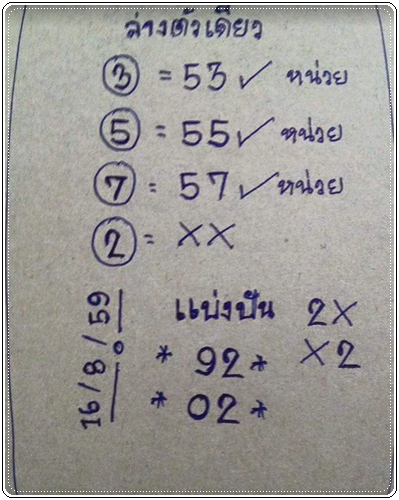 ล่างตัวเดียว
3 = 53 ✓ หน่วย
5 = 55 ✓ หน่วย
7 = 57 ✓ หน่วย
2 = XX
แบ่งปัน 2X
* 92 * X2
* 02 *
16/8/59